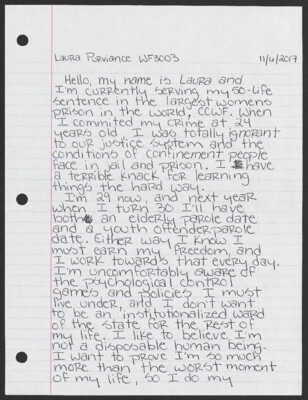 Laura Purviance WF3003 11/6/2017
Hello, my name is Laura and
I'm currently serving my 50-life
sentence in the largest womens
prison in the world, CCWF. When
I commited my crime at 24
years old, I was totally ignorant
to our justice system and the
conditions of confinement people
face in jail and prison. I have
a terrible knack for learning
things the hard way.
I'm 29 now, and next year
when I turn 30 I'll have
both an elderly parole date
and a youth offender parole
date. Either way I know I
must earn my freedom, and
I work towards that every day.
I'm uncomfortably aware of
the psychological control
games and policies I must
live under, and I don't want
to be an institutionalized ward
of the state for the rest of
my life. I like to believe I'm
not a disposable human being.
I want to prove I'm so much
more than the worst moment
of my life, so I do my